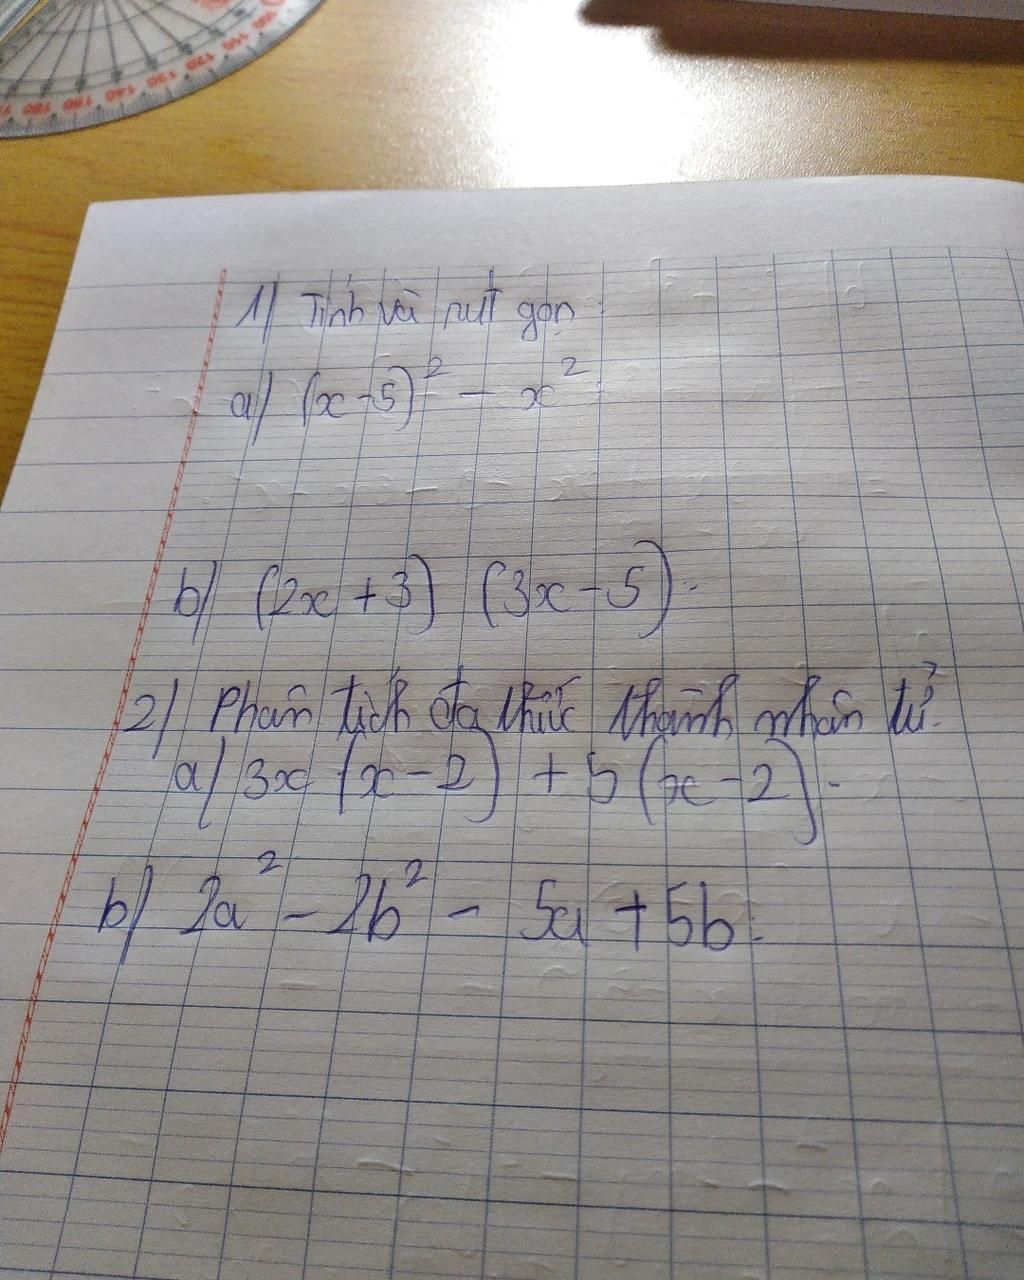 1) Tính và rút gọn:
a) (x-5)² - x²
b) (2x + 3) (3x - 5).
2) Phân tích đa thức thành nhân tử.
a) 3x (x - 2) + 5 (x - 2).
b) 2a² - 2b² - 5a + 5b.